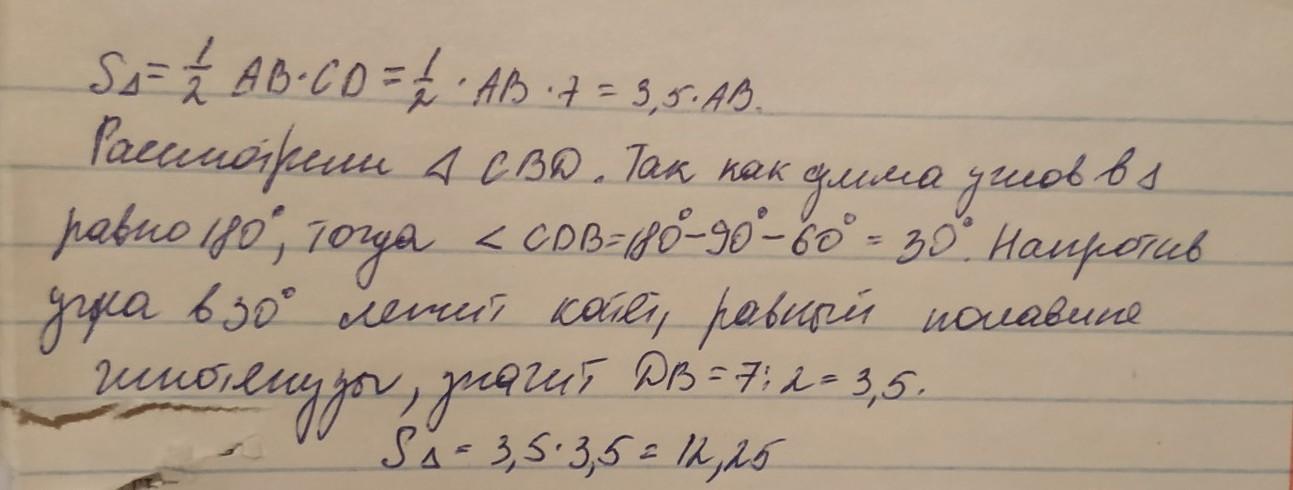 S△ = 1/2 AB · CD = 1/2 · AB · 7 = 3,5 · AB.
Рассмотрим △ CBD. Так как сумма углов в △
равно 180°, тогда < CDB = 180° - 90° - 60° = 30°. Напротив
угла в 30° лежит катет, равный половине
гипотенузы, значит DB = 7 : 2 = 3,5.
S△ = 3,5 · 3,5 = 12,25